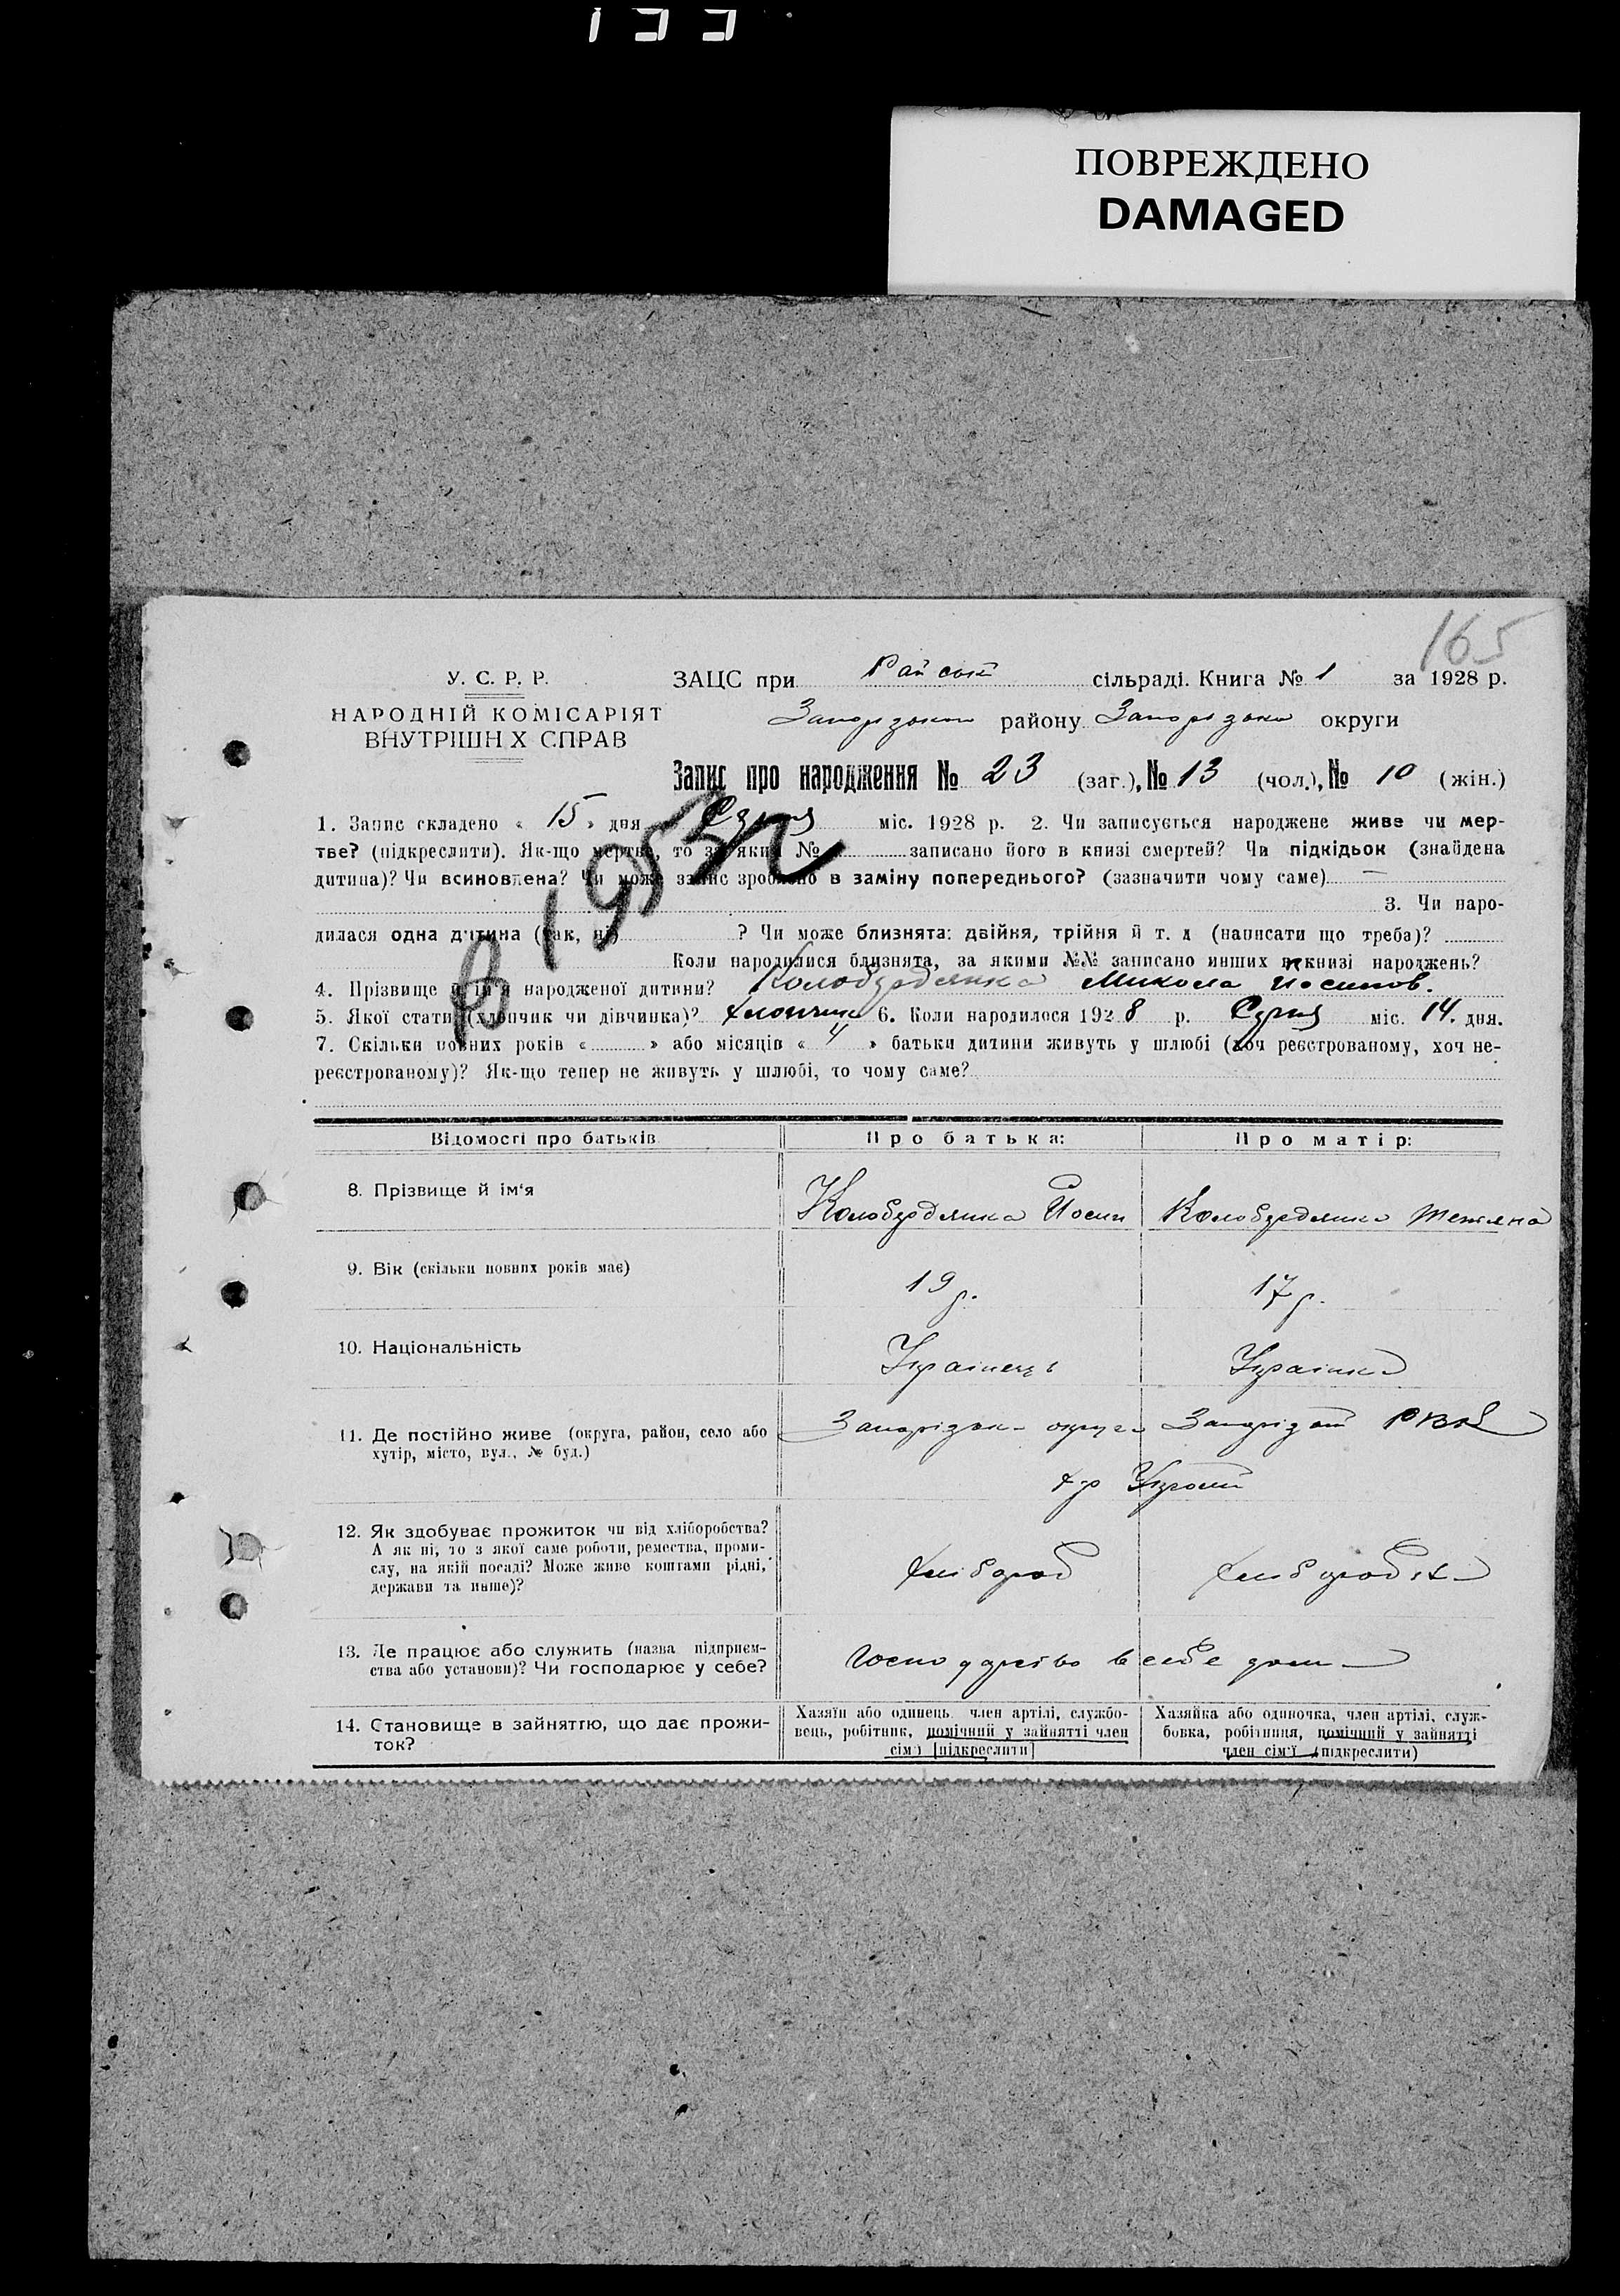 133
ПОВРЕЖДЕНО
DAMAGED
165
У. С. Р. Р.
НАРОДНІЙ КОМІСАРІЯТ
ВНУТРІШН Х СПРАВ
ЗАЦС при Райській сільраді. Книга № 1 за 1928 р.
району округи
Запис про народження № 23 (заг.), № 13 (чол.), № 10 (жін.)
1. Запис складено « 15 » дня Серпня міс. 1928 р. 2. Чи записується народжене живе чи мер-
тве? (підкреслити). Як-що мертве, то за яким № записано його в книзі смертей? Чи підкідьок (знайдена
дитина)? Чи всиновлена? Чи може запис зроблено в заміну попереднього? (зазначити чому саме) —
3. Чи наро-
дилася одна дитина (так, ні) ? Чи може близнята: двійня, трійня й т. д (написати що треба)?
Коли народилися близнята, за якими №№ записано инших в книзі народжень?
4. Прізвище й ім'я народженої дитини? Колобердянка Микола Йосипов.
5. Якої статі (хлопчик чи дівчинка)? хлопчик 6. Коли народилося 1928 р. Серпня міс. 14. дня.
7. Скільки повних років « » або місяців « 4 » батьки дитини живуть у шлюбі (хоч реєстрованому, хоч не-
реєстрованому)? Як-що тепер не живуть у шлюбі, то чому саме?
Відомості про батьків
Про батька:
Про матір:
8. Прізвище й ім'я
Колобердянка Йосип
Колобердянка Тетяна
9. Вік (скільки повних років має)
19 р.
17 р.
10. Національність
Українець
Українка
11. Де постійно живе (округа, район, село або
хутір, місто, вул., № буд.)
округа
х-р
12. Як здобуває прожиток чи від хліборобства?
А як ні, то з якої саме роботи, ремества, проми-
слу, на якій посаді? Може живе коштами рідні,
держави та инше)?
хлібороб
хліборобка
13. Де працює або служить (назва підприєм-
ства або установи)? Чи господарює у себе?
господарство в себе дома
14. Становище в зайняттю, що дає прожи-
ток?
Хазяїн або одинець, член артілі, службо-
вець, робітник, помічний у зайнятті член
сім'ї [підкреслити]
Хазяйка або одиночка, член артілі, служ-
бовка, робітниця, помічний у зайнятті
член сім'ї (підкреслити)